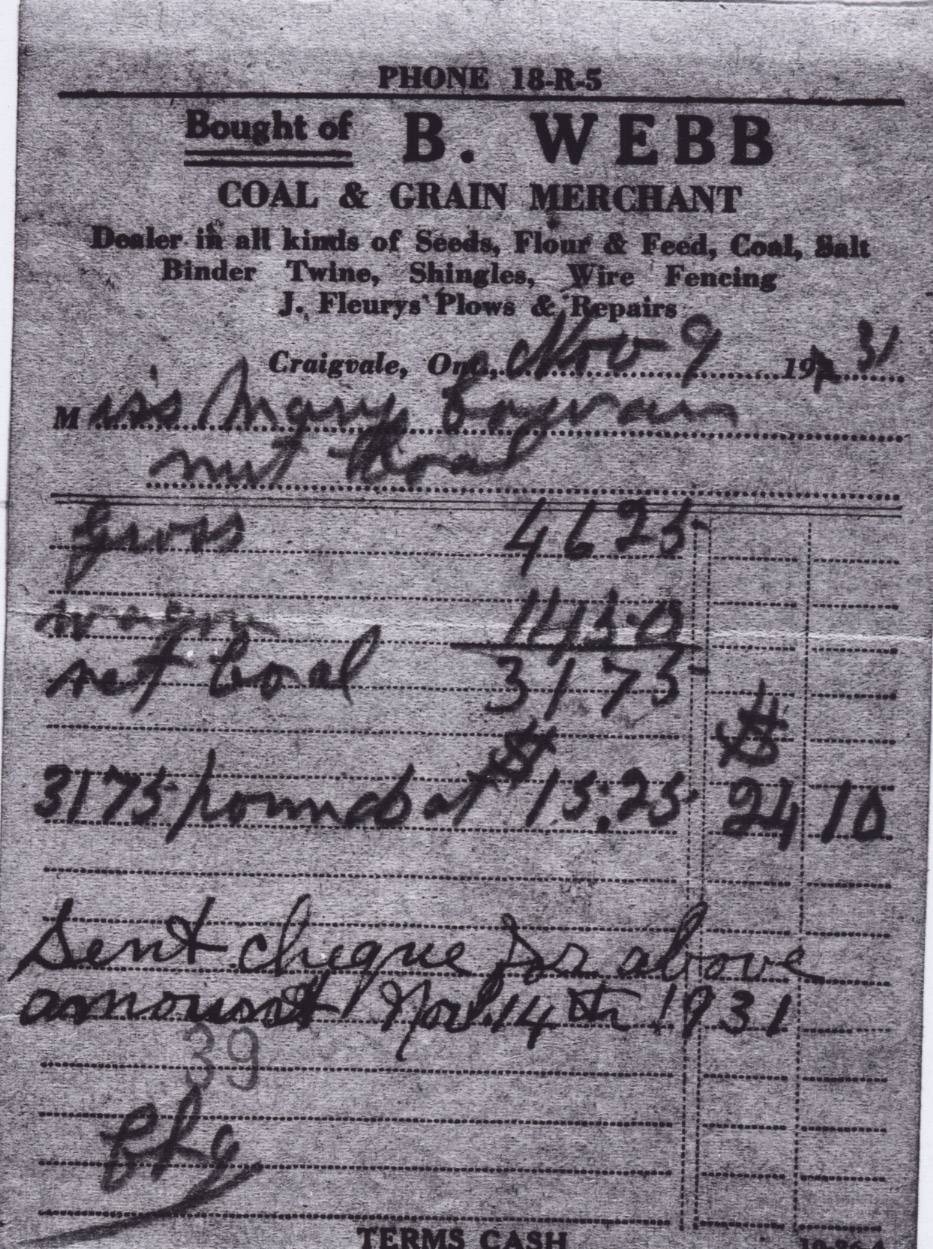 PHONE 18-R-5
Bought of B. WEBB
COAL & GRAIN MERCHANT
Dealer in all kinds of Seeds, Flour & Feed, Coal, Salt
Binder Twine, Shingles, Wire Fencing
J. Fleurys' Plows & Repairs
Craigvale, Ont., Nov 9 19 31
Miss Mary
nut Coal
Gross 4625
wagon 1450
net Coal 3175
$ $
3175 pounds at 15.25 24 10
Sent cheque for above
amount Nov. 14th 1931
39
Chq
TERMS CASH